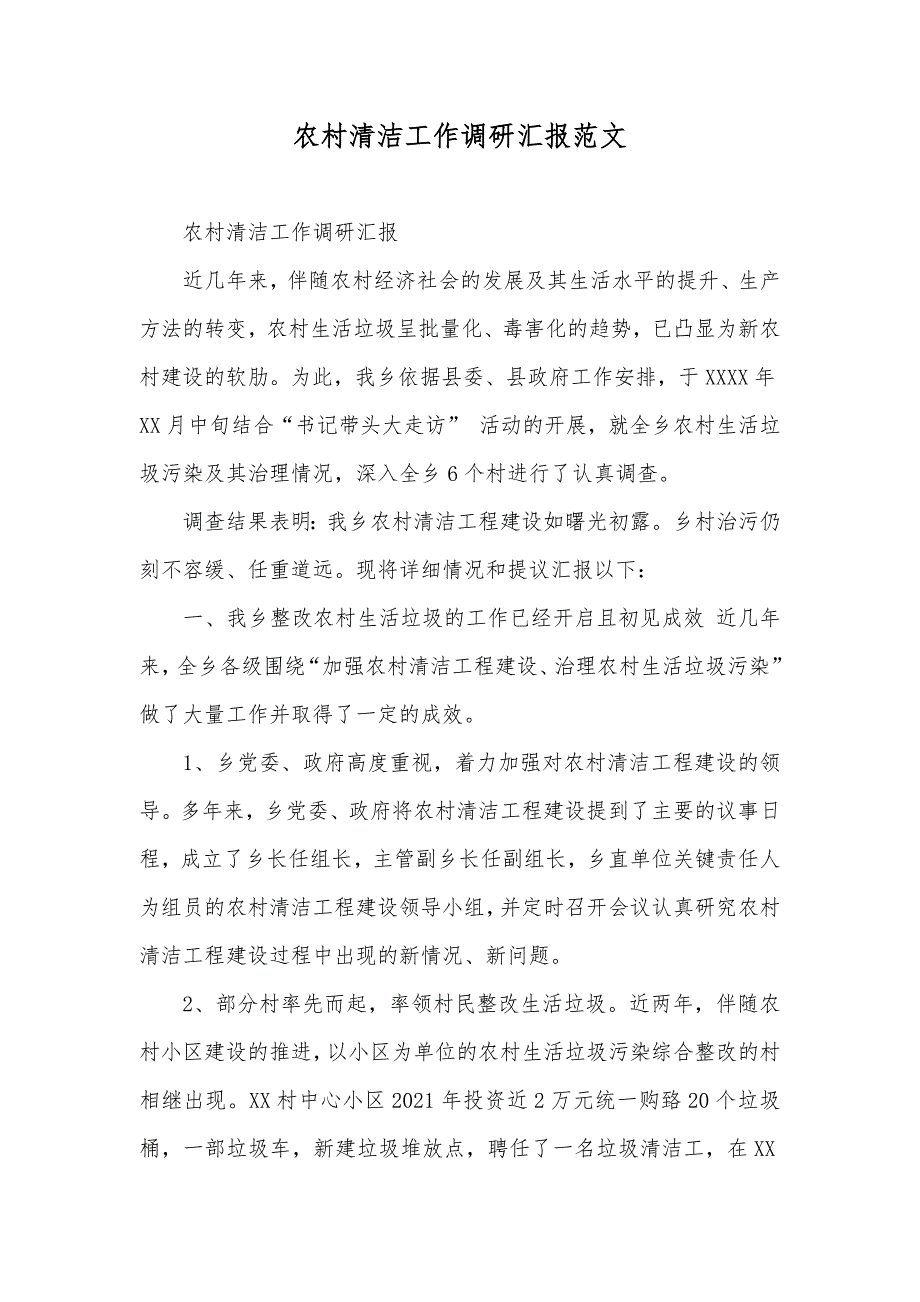 农村清洁工作调研汇报范文
农村清洁工作调研汇报
近几年来，伴随农村经济社会的发展及其生活水平的提升、生产
方法的转变，农村生活垃圾呈批量化、毒害化的趋势，已凸显为新农
村建设的软肋。为此，我乡依据县委、县政府工作安排，于 XXXX 年
XX 月中旬结合“书记带头大走访” 活动的开展，就全乡农村生活垃
圾污染及其治理情况，深入全乡 6 个村进行了认真调查。
调查结果表明：我乡农村清洁工程建设如曙光初露。乡村治污仍
刻不容缓、任重道远。现将详细情况和提议汇报以下：
一、我乡整改农村生活垃圾的工作已经开启且初见成效 近几年
来，全乡各级围绕“加强农村清洁工程建设、治理农村生活垃圾污染”
做了大量工作并取得了一定的成效。
1、乡党委、政府高度重视，着力加强对农村清洁工程建设的领
导。多年来，乡党委、政府将农村清洁工程建设提到了主要的议事日
程，成立了乡长任组长，主管副乡长任副组长，乡直单位关键责任人
为组员的农村清洁工程建设领导小组，并定时召开会议认真研究农村
清洁工程建设过程中出现的新情况、新问题。
2、部分村率先而起，率领村民整改生活垃圾。近两年，伴随农
村小区建设的推进，以小区为单位的农村生活垃圾污染综合整改的村
相继出现。XX 村中心小区 2021 年投资近 2 万元统一购臵 20 个垃圾
桶，一部垃圾车，新建垃圾堆放点，聘任了一名垃圾清洁工，在 XX